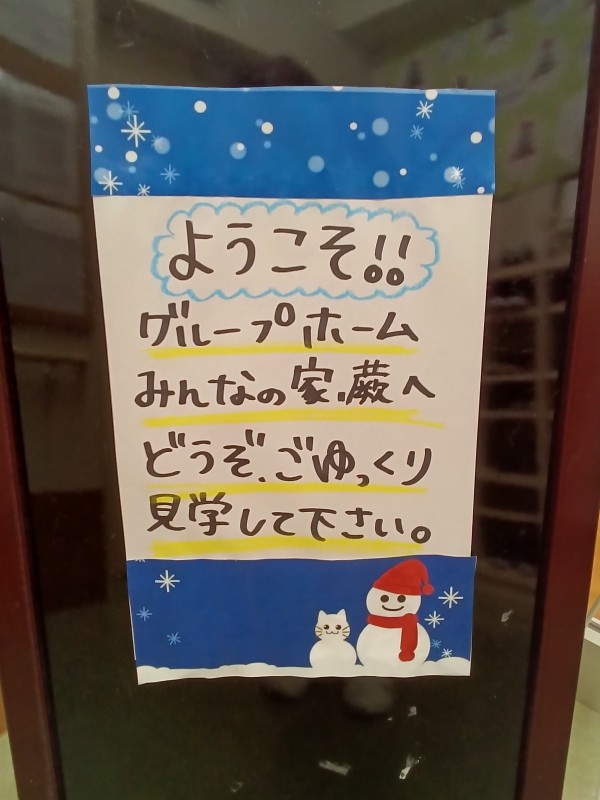 ようこそ!!
グループホーム
みんなの家.蕨へ
どうぞ.ごゆっくり
見学して下さい。